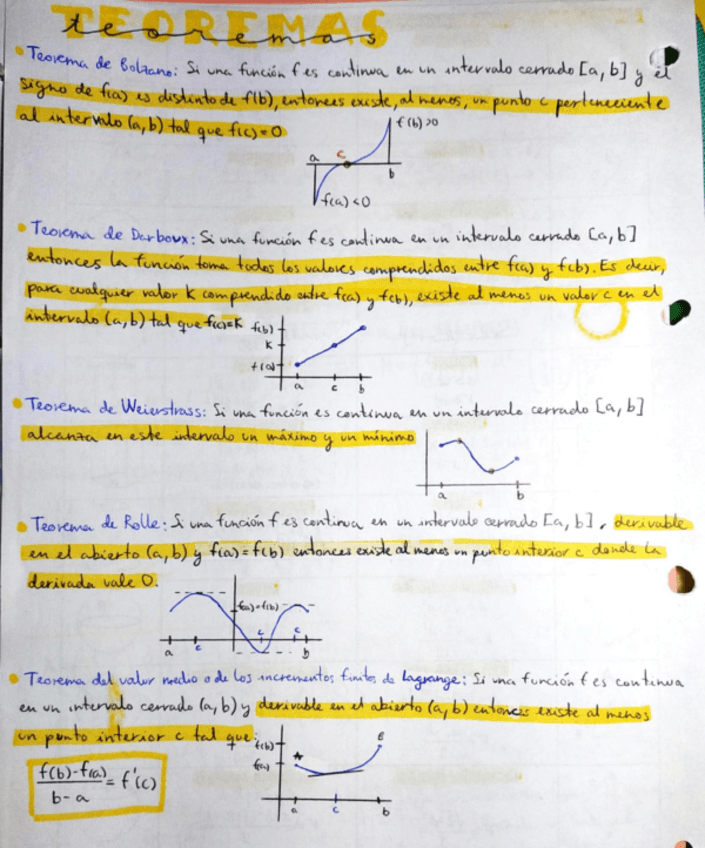 TEOREMAS
teoremas
• Teorema de Bolzano: Si una función f es continua en un intervalo cerrado [a, b] y el
signo de f(a) es distinto de f(b), entonces existe, al menos, un punto c perteneciente
al intervalo (a, b) tal que f(c)=0
f(b)>0
a c b
f(a)<0
• Teorema de Darboux: Si una función f es continua en un intervalo cerrado [a, b]
entonces la función toma todos los valores comprendidos entre f(a) y f(b). Es decir,
para cualquier valor K comprendido entre f(a) y f(b), existe al menos un valor c en el
intervalo (a, b) tal que f(c)=K
f(b)
K
f(a)
a c b
• Teorema de Weierstrass: Si una función es continua en un intervalo cerrado [a, b]
alcanza en este intervalo un máximo y un mínimo
a b
• Teorema de Rolle: Si una función f es continua en un intervalo cerrado [a, b], derivable
en el abierto (a, b) y f(a)=f(b) entonces existe al menos un punto interior c donde la
derivada vale 0.
f(a)=f(b)
a c c c b
• Teorema del valor medio o de los incrementos finitos de Lagrange: Si una función f es continua
en un intervalo cerrado (a, b) y derivable en el abierto (a, b) entonces existe al menos
un punto interior c tal que:
f(b)
f(a)
A B
a c b
f(b)-f(a)
b-a
= f'(c)